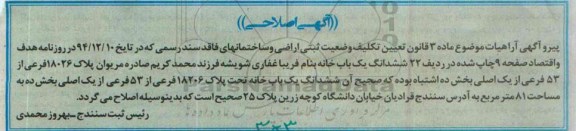 ((آگهی اصلاحی))
پیرو آگهی آراء هیات موضوع ماده ۳ قانون تعیین تکلیف وضعیت ثبتی اراضی و ساختمانهای فاقد سند رسمی که در تاریخ ۹۴/۱۲/۱۰ در روزنامه هدف
واقتصاد صفحه ۹ چاپ شده در ردیف ۲۲ ششدانگ یک باب خانه بنام فریبا غفاری شویشه فرزند محمد کریم صادره مریوان پلاک ۱۸۰۲۶ فرعی از
۵۳ فرعی از یک اصلی بخش ده اشتباه بوده که صحیح آن ششدانگ یک باب خانه تحت پلاک ۱۸۲۰۶ فرعی از ۵۳ فرعی از یک اصلی بخش ده به
مساحت ۸۱ متر مربع به آدرس سنندج فرادیان خیابان دانشگاه کوچه زرین پلاک ۲۵ صحیح است که بدینوسیله اصلاح می گردد.
رئیس ثبت سنندج - بهروز محمدی
۳۰۳